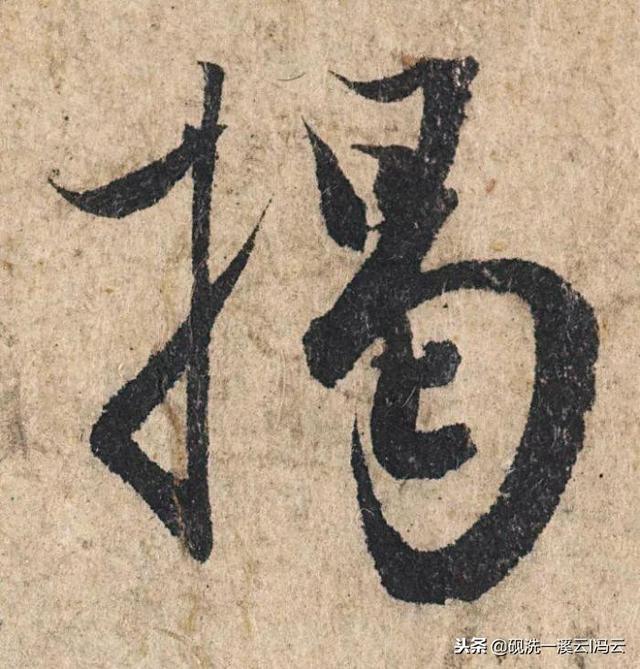 揭
头条 @砚洗一溪云|冯云